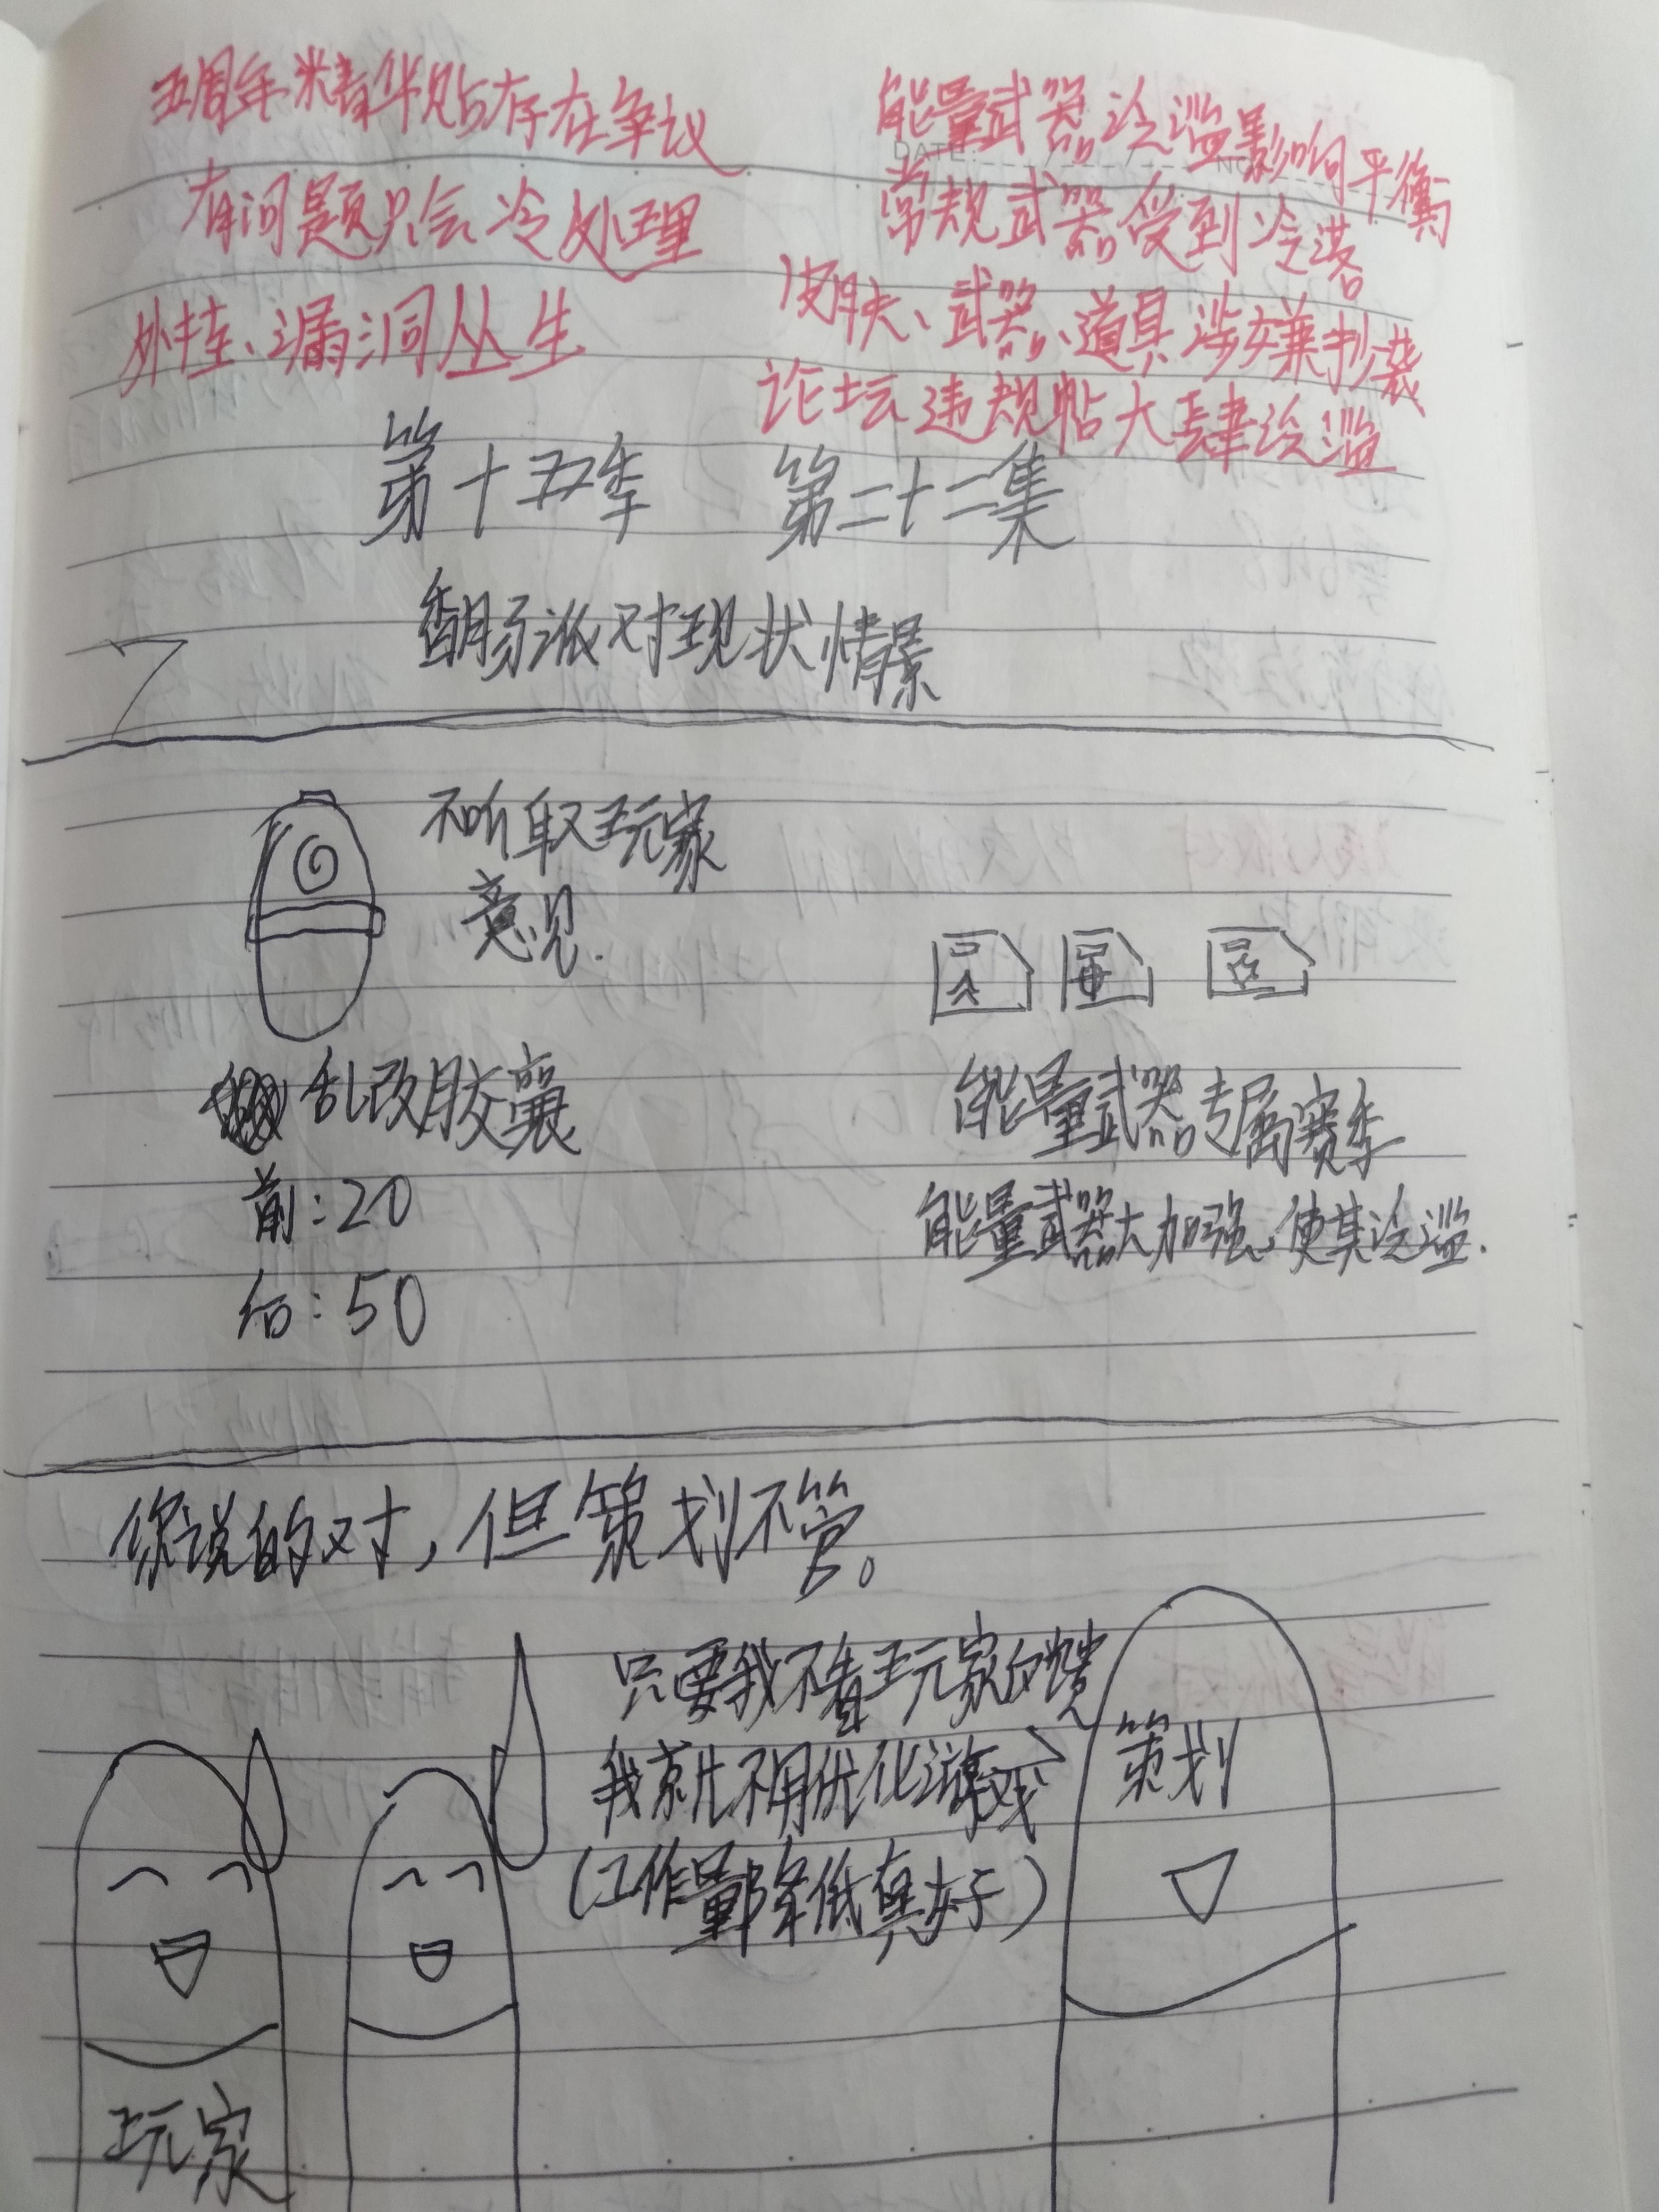 五周年精华贴存在争议
有问题只会冷处理
外挂、漏洞丛生
能量武器泛滥影响平衡
常规武器受到冷落
皮肤、武器、道具涉嫌抄袭
论坛违规帖大肆泛滥
DATE
NO
第十五季 第二十二集
香肠派对现状情景
不听取玩家
意见.
乱改胶囊
前:20
后:50
能量武器专属赛季
能量武器大加强,使其泛滥.
你说的对,但策划不管。
只要我不看玩家反馈
我就不用优化游戏
(工作量降低真好)
策划
玩家